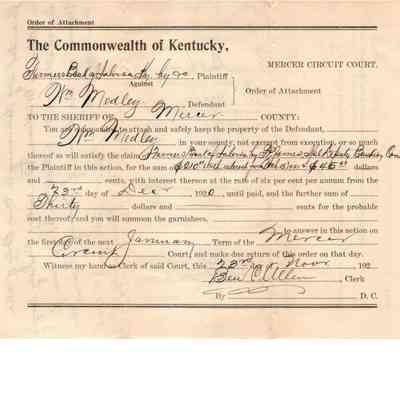 Order of Attachment
The Commonwealth of Kentucky,
Farmers Bank of Salvisa Ky, by &c Plaintiff
MERCER CIRCUIT COURT.
Against
Order of Attachment
Wm Medley, Defendant
TO THE SHERIFF OF Mercer COUNTY:
You are commanded to attach and safely keep the property of the Defendant,
Wm Medley in your county, not exempt from execution, or so much
thereof as will satisfy the claim Farmers Bank of Salvisa by Banking
the Plaintiff in this action, for the sum of $ dollars
and cents, with interest thereon at the rate of six per cent per annum from the
23rd day of Decr 1920, until paid, and the further sum of
Thirty dollars and cents for the probable
cost thereof and you will summon the garnishees.
to answer in this action on
the first day of the next January Term of the Mercer
Circuit Court, and make due return of this order on that day.
Witness my hand as Clerk of said Court, this 23rd day of 192
Ben C. Allen Clerk
By D. C.